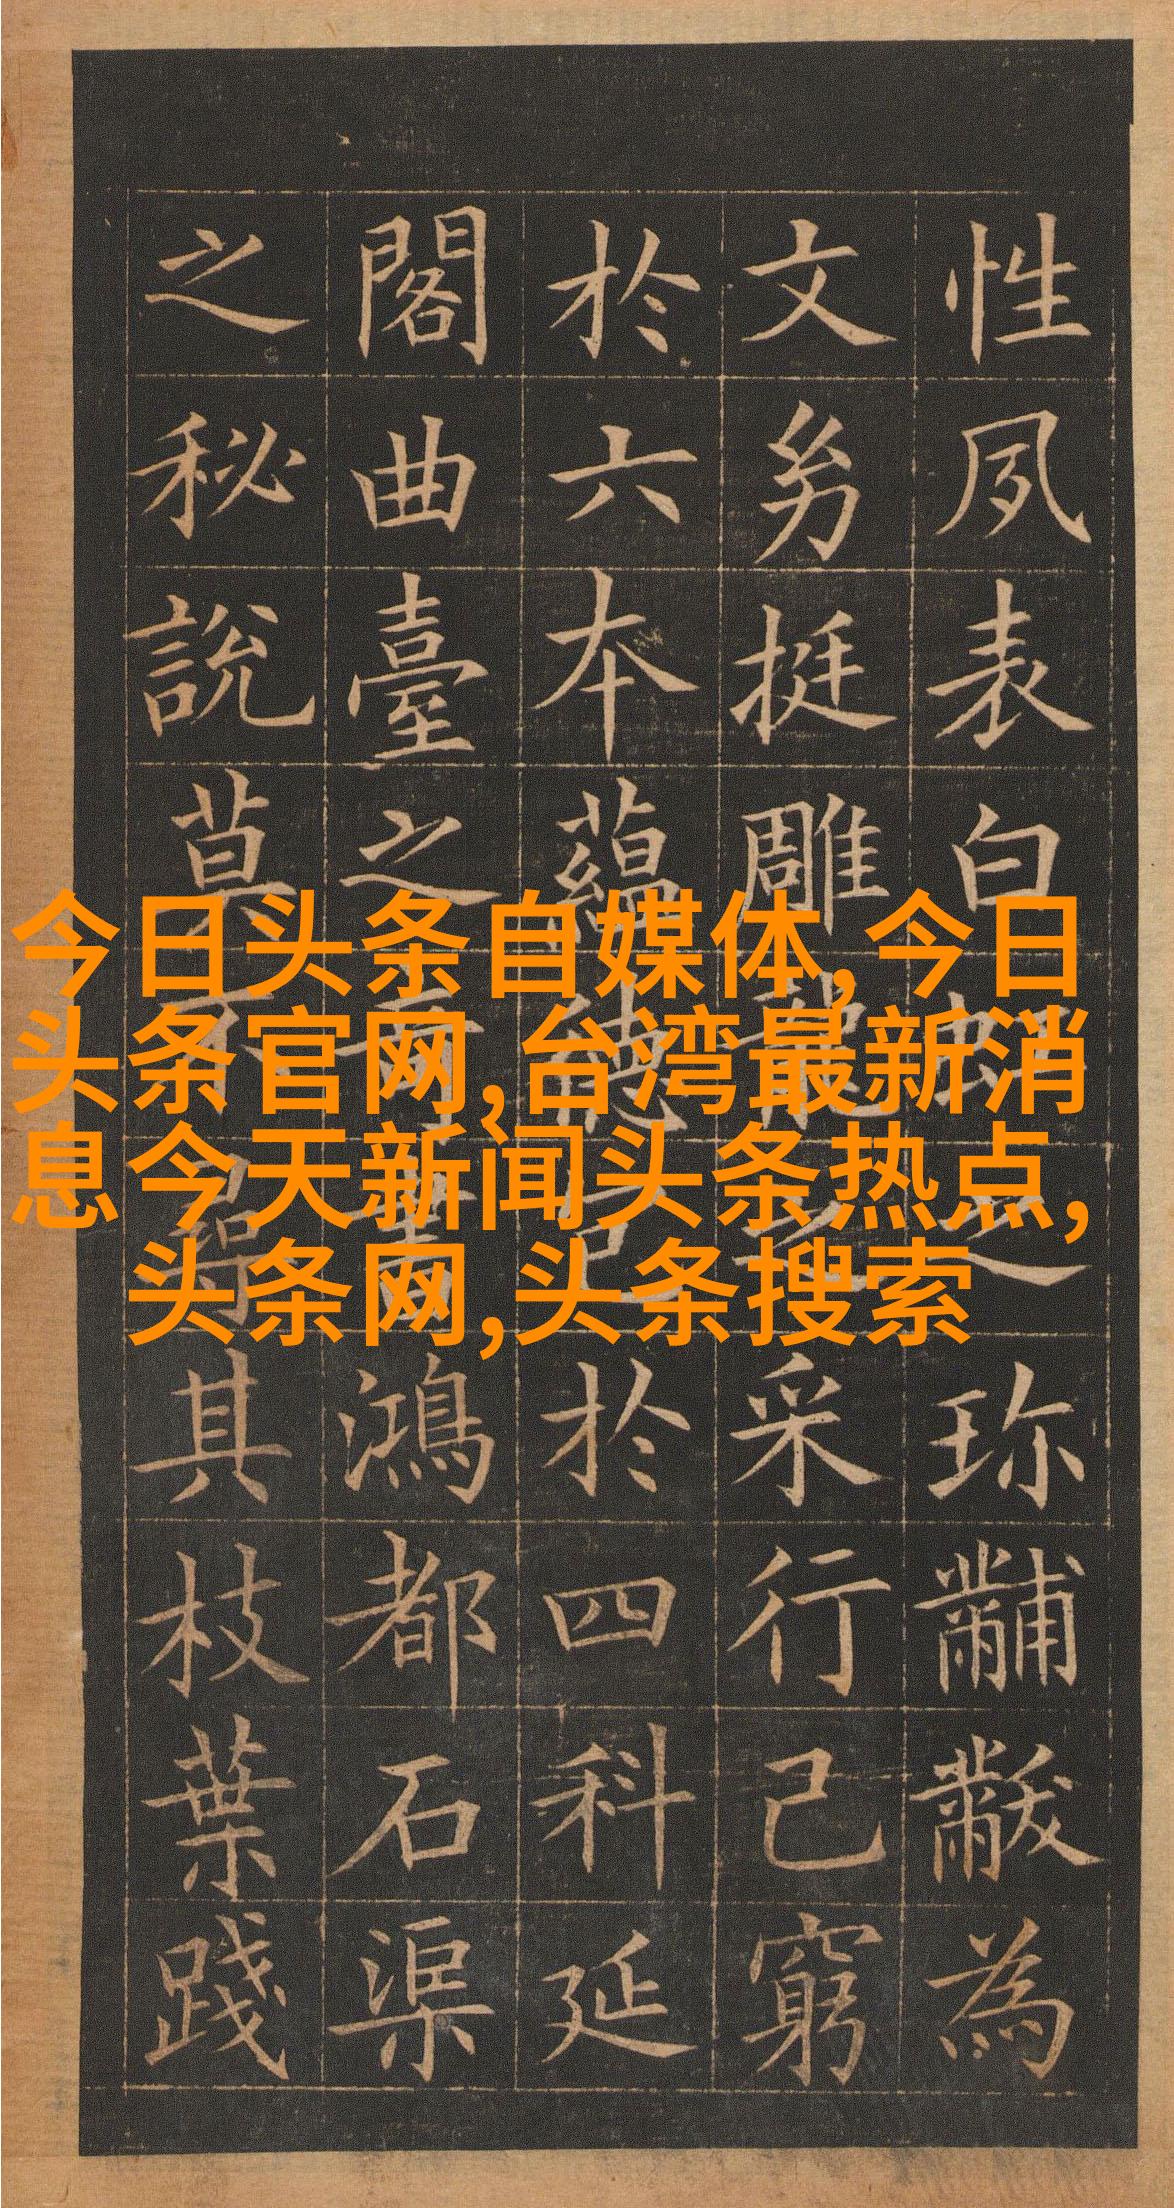 性夙表白虹之珍黼黻為
文㓜挺雕龍之采行己窮
於六本蘊德包於四科延
閣曲臺之奇書鴻都石渠
之秘說莫不尋其枝葉踐
今日头条自媒体,今日
头条官网,台湾最新消
息今天新闻头条热点,
头条网,头条搜索